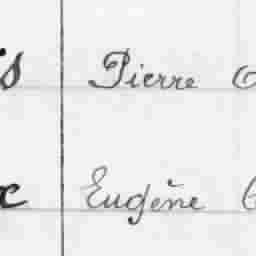 s Pierre
x Eugène